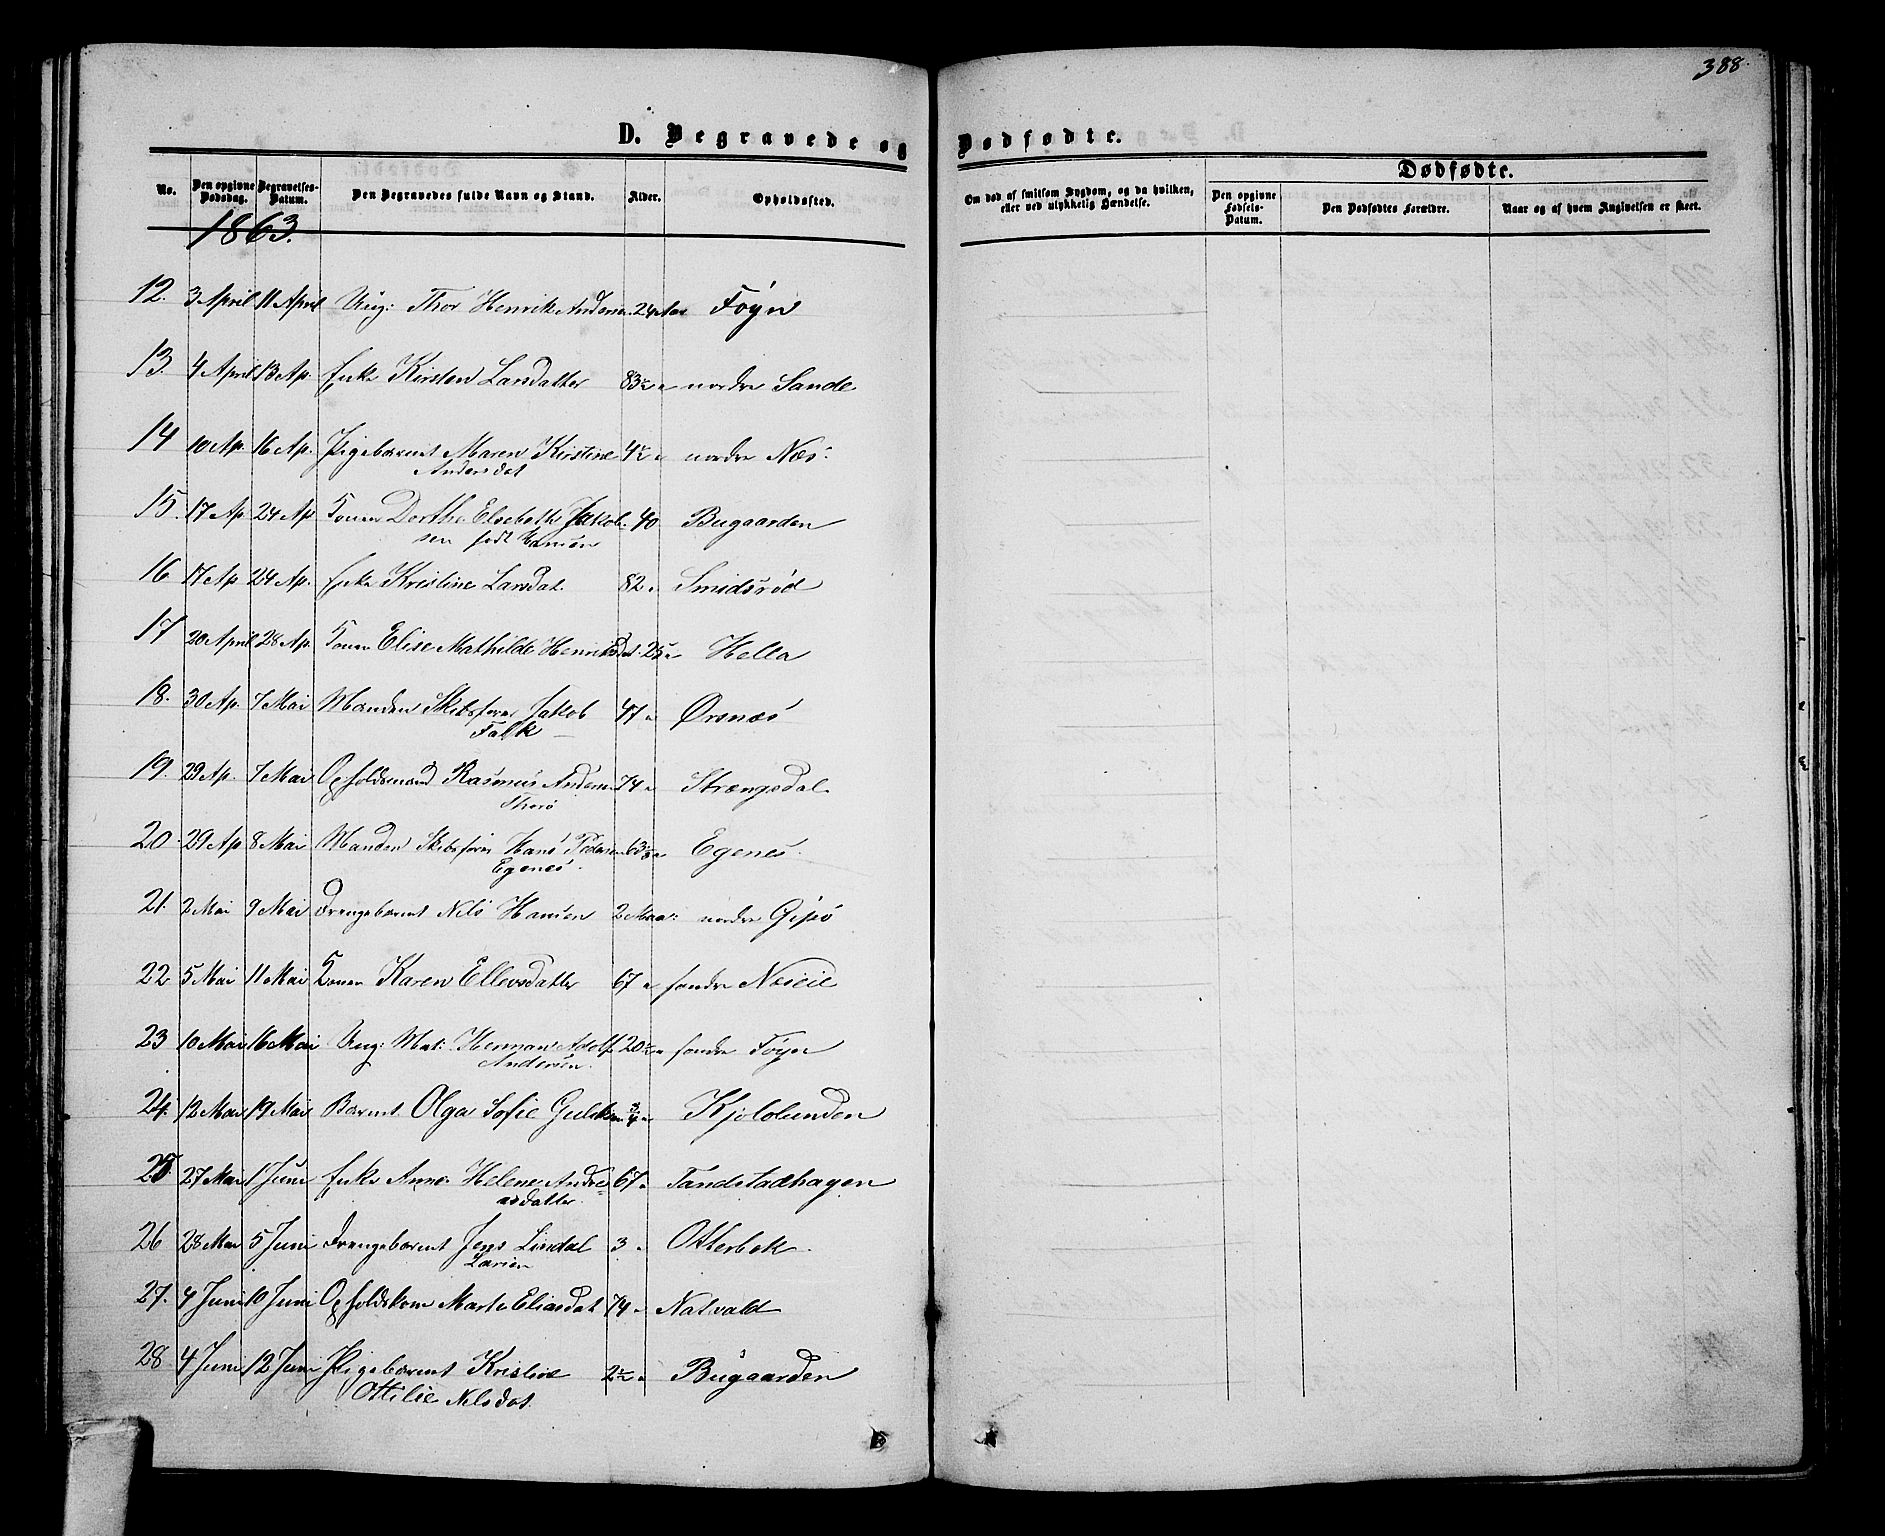 388.
D. Begravede og Dødfødte.
No. Den opgivne Dødsdag. Begravelses-Datum. Den Begravedes fulde Navn og Stand. Alder. Opholdssted. Om død af smitsom Sygdom, og da hvilken, eller ved ulykkelig Hændelse. Dødfødte.
Den opgivne Fødsels-Datum. Den Dødfødtes Forældre. Naar og af hvem Angivelsen er skeet.
1863.
12. 3 April 11 April Ung: Thor Henrik Andersen 24 Aar Föyn
13. 4 April 13 Ap. Enke Kirsten Larsdatter 83½ " nordre Sande
14 10 Ap. 16 Ap. Pigebarnet Maren Kirstine 4½ " nordre Næs
Andersdat
15. 17 Ap 24 Ap Konen Dorthe Elsebeth Jakob- 40 Bugaarden
sen født Hansen
16 17 Ap 24 Ap. Enke Kristine Larsdat. 82 " Smidsröd
17 20 April 28 Ap. Konen Elise Mathilde Henriksdat. 25 " Hella
18. 30 Ap. 7 Mai Manden Skibsfører Jakob 47 " Ørsnæs
Falk
19. 29 Ap. 7 Mai Opholdsmand Rasmus Andersen 74 " Strængsdal
20. 29 Ap 8 Mai Manden Skibsfører Hans Pedersen 63 " Egenes
Egenes.
21. 2 Mai 9 Mai Drengebarnet Nils Hansen 2 Maa: nordre Gipö
22 5 Mai 11 Mai Konen Karen Ellevsdatter 67 " søndre Næseie
23 10 Mai 16 Mai Ung: Mat: Herman Adolf 20½ " søndre Föyn
Andersen.
24. 12 Mai 19 Mai Barnet Olga Sofie Gulliksen ¾ " Kjölolunden
25. 27 Mai 1 Juni Enke Anne Helene Andre= 67 " Tandstadhagen
asdatter
26 28 Mai 5 Juni Drengebarnet Jens Lindal 3 " Otterbek
Larsen
27. 4 Juni 10 Juni Opholdskone Marte Eliasdat 74 " Natvald
28 4 Juni 12 Juni Pigebarnet Kristine 2½ " Bugaarden
Ottilie Nilsdat.